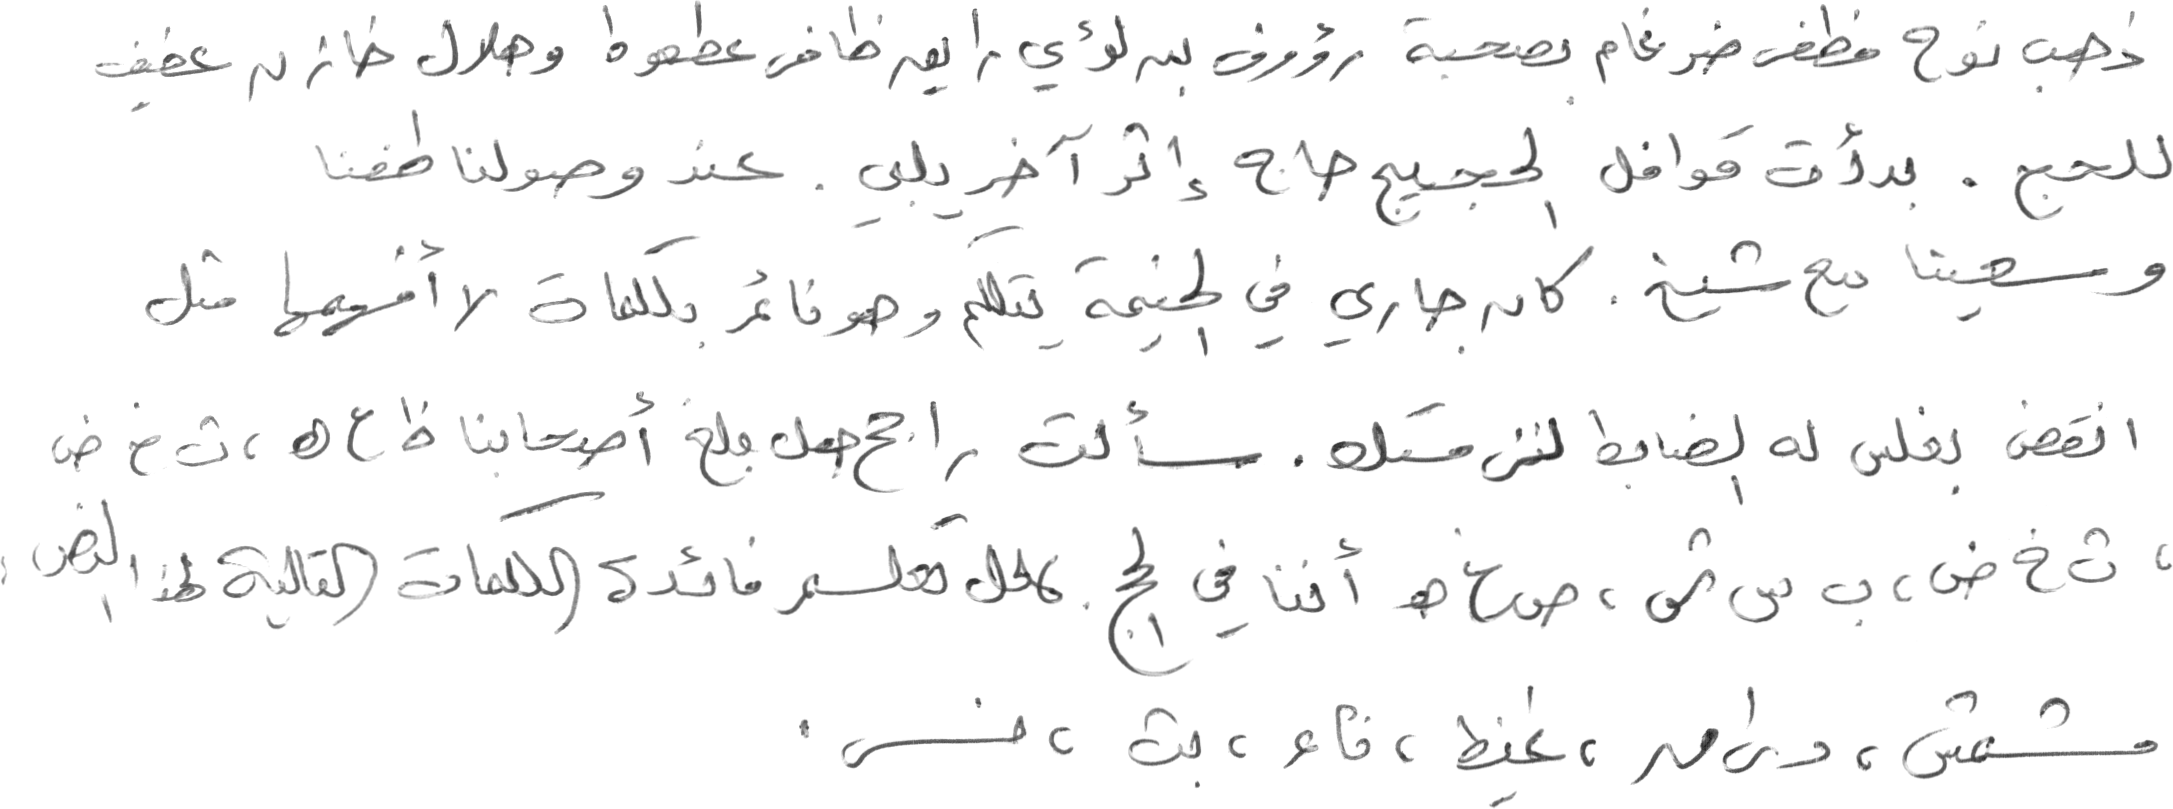 ذهب نوح مظفر ضرغام بصحبة رؤوف بن لؤي رايق ظافر عطعوط وهلال خازن عفيف
للحج . بدأت قوافل الحجيج حاج إثر آخر يلبي . عند وصولنا طفنا
وسعينا مع شيخ . كان جاري في الخيمة يتكلم وهو نائم بكلمات لا أفهمها مثل
انقض بغلس له الضابط لنش مسك . سألت راجح هل بلغ أصحابنا ظ ع ه ، ث خ ض
، ث خ ض ، ب س ش ، ص غ ه أننا في الحج . هل تعلم فائدة الكلمات التالية لهذا النص :
مشمش ، دراهم ، غيظ ، ناء ، بث ، خس .